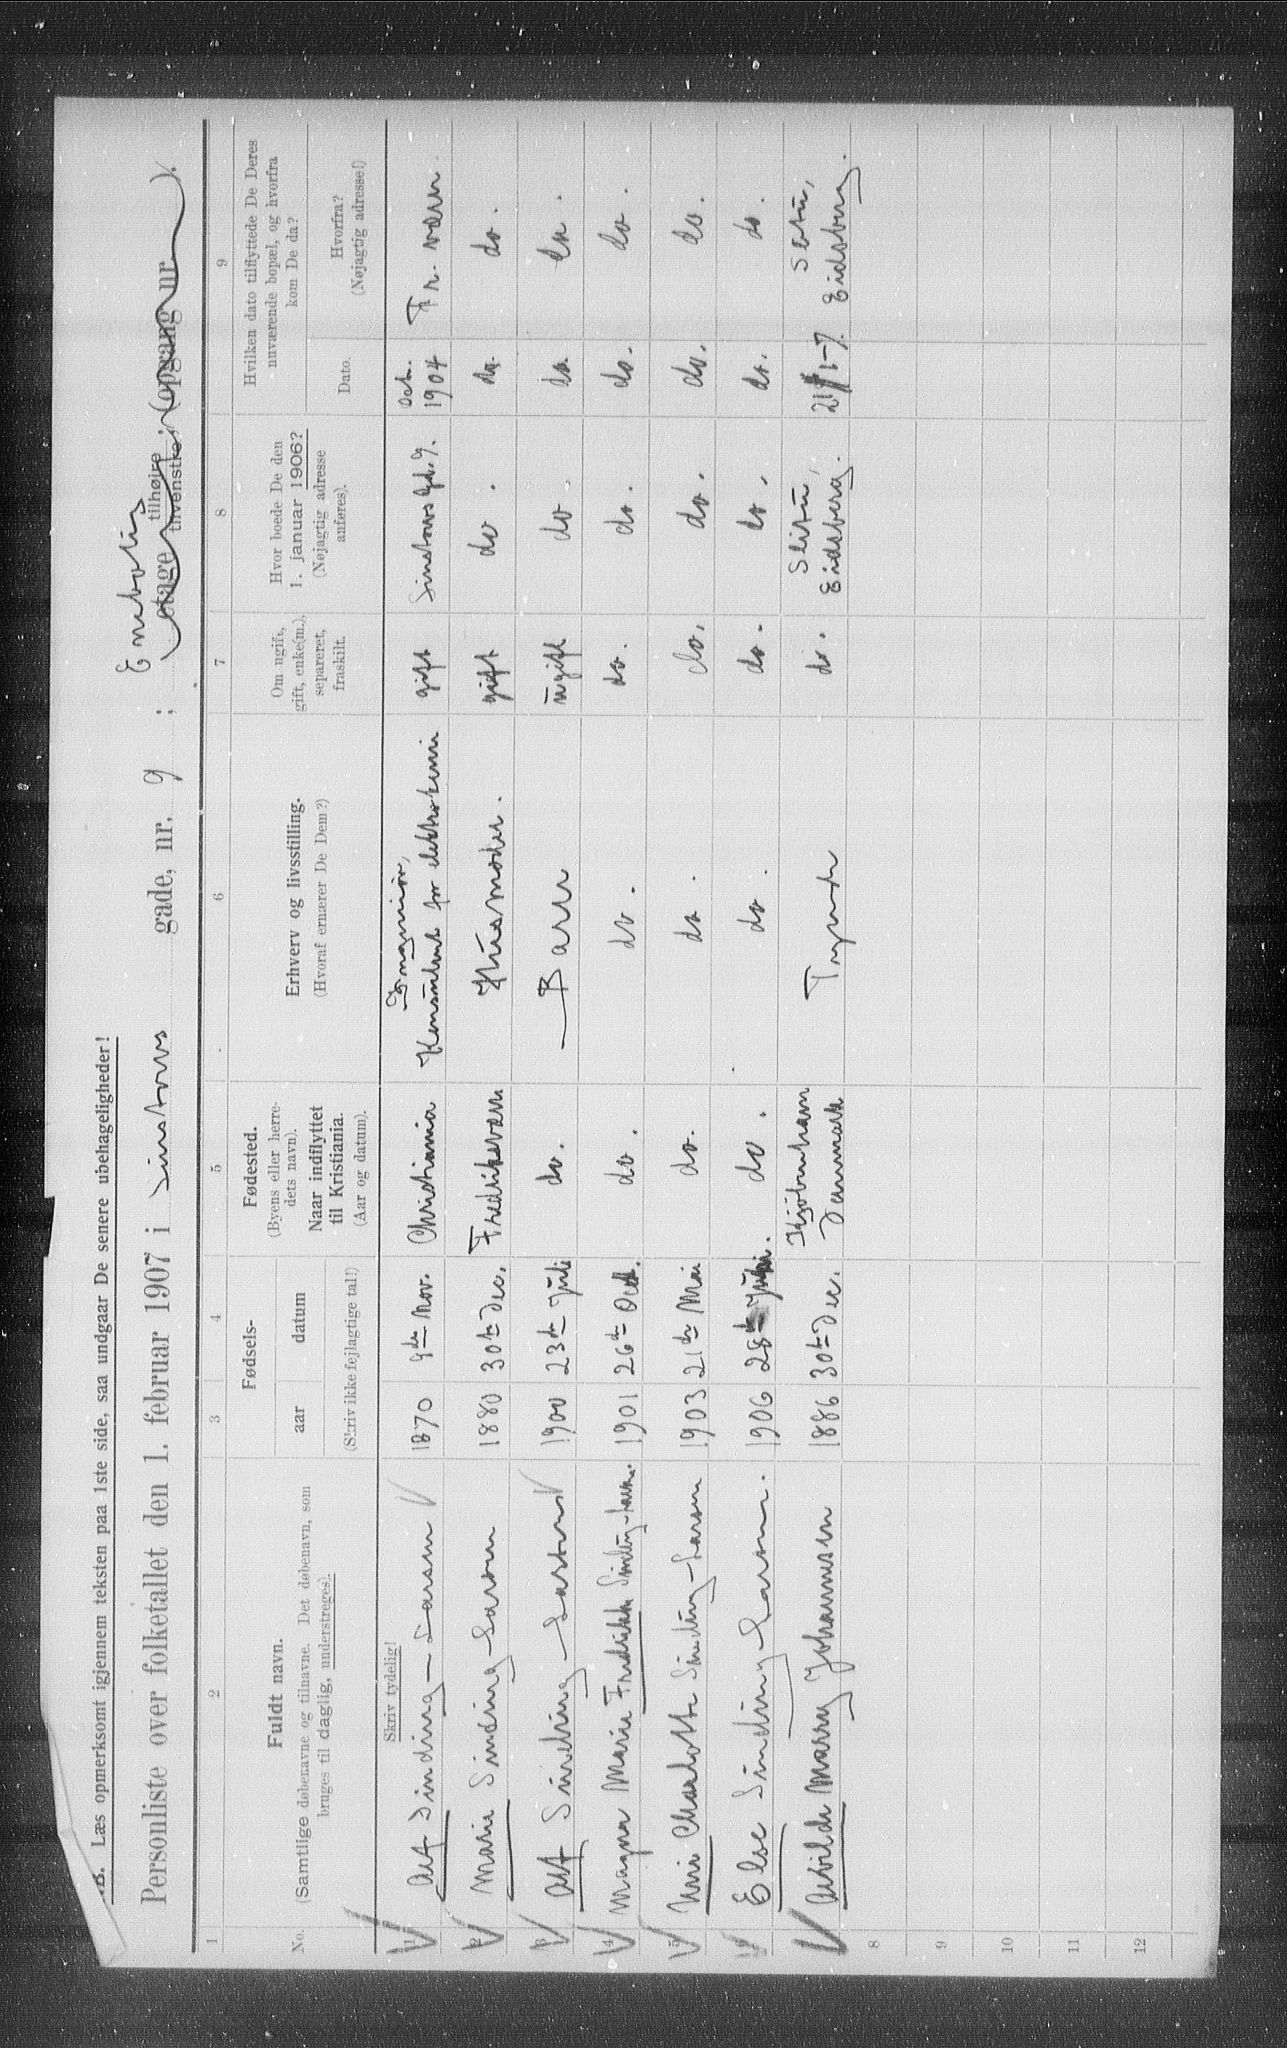 NB. Læs opmerksomt igjennem teksten paa 1ste side, saa undgaar De senere ubehageligheder!
Personliste over folketallet den 1. februar 1907 i Sinsens gade, nr. 9 ; Enebolig etage tilhøjre tilvenstre; (opgang nr. ).
1 2 3 4 5 6 7 8 9
No.
Fuldt navn.
(Samtlige døbenavne og tilnavne. Det døbenavn, som
bruges til daglig, understreges).
Fødsels-
aar datum
(Skriv ikke fejlagtige tal!)
Fødested.
(Byens eller herre-
dets navn).
Naar indflyttet
til Kristiania.
(Aar og datum).
Erhverv og livsstilling.
(Hvoraf ernærer De Dem?)
Om ugift,
gift, enke(m.),
separeret,
fraskilt.
Hvor boede De den
1. januar 1906?
(Nøjagtig adresse
anføres).
Hvilken dato tilflyttede De Deres
nuværende bopæl, og hvorfra
kom De da?
Dato.
Hvorfra?
(Nøjagtig adresse!)
Skriv tydelig!
1 Alf Sinding-Larsen 1870 9de Nov. Christiania Ingeniør, Konsulent for elektrokemi gift Oct. 1904 Fr. værn
2 Marie Sinding-Larsen 1880 30te Dec. Fredriksværn Husmoder. gift do. do. do.
3 Alf Sinding-Larsen 1900 23de Juli do. Barn ugift do. do. do.
4 Magna Marie Fredrikke Sinding-Larsen. 1901 26de Oct. do. do. do. do. do. do.
5 Charlotte Sinding-Larsen 1903 21de Mai do. do. do. do. do. do.
6 Else Sinding-Larsen. 1906 28de do. do. do. do. do. do.
Asbilde Marry Johannesen 1886 30te Dec. Kjøbenhavn Danmark do. Slitu, Eidsberg. 21/1-7. Slitu, Eidsberg.
8
9
10
11
12